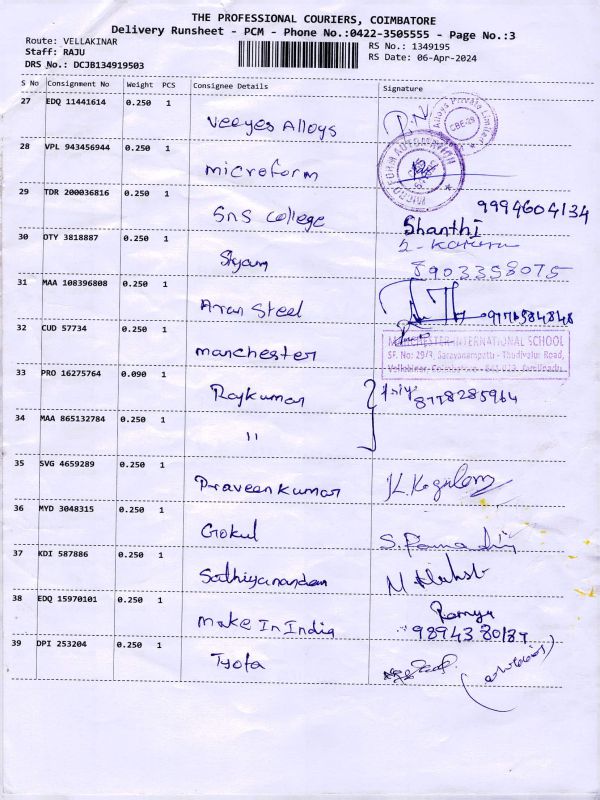 THE PROFESSIONAL COURIERS, COIMBATORE
Delivery Runsheet - PCM - Phone No.:0422-3505555 - Page No.:3
Route: VELLAKINAR
RS No.: 1349195
Staff: RAJU
RS Date: 06-Apr-2024
DRS No.: DCJB134919503
S No Consignment No Weight PCS Consignee Details Signature
27 EDQ 11441614 0.250 1
Veeyes Alloys
Alloys Private Limited
CBE-29
28 VPL 943456944 0.250 1
microform
MICROFORM AUTOMATION
29 TDR 200036816 0.250 1
SnS College
9994604134
Shanthi
30 OTY 3818887 0.250 1
Siyam
8903358075
31 MAA 108396808 0.250 1
Aran Steel
32 CUD 57734 0.250 1
manchester
MANCHESTER INTERNATIONAL SCHOOL
SF. No: 29/3, Saravanampatti - Thudiyalur Road,
33 PRO 16275764 0.090 1
Rajkumar
8778285964
34 MAA 865132784 0.250 1
"
35 SVG 4659289 0.250 1
Praveenkumar
36 MYD 3048315 0.250 1
Gokul
37 KDI 587886 0.250 1
Sathiyanandam
38 EDQ 15970101 0.250 1
Make In India
Ramya
39 DPI 253204 0.250 1
Tyota